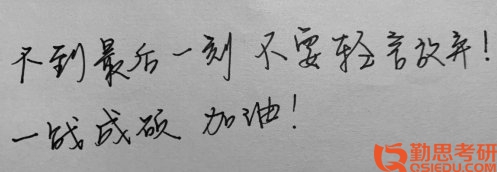 不到最后一刻 不要轻言放弃！
一战成硕 加油！
勤思考研
QSIEDU.COM